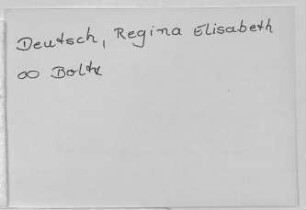 Deutsch, Regina Elisabeth
∞ Bolte